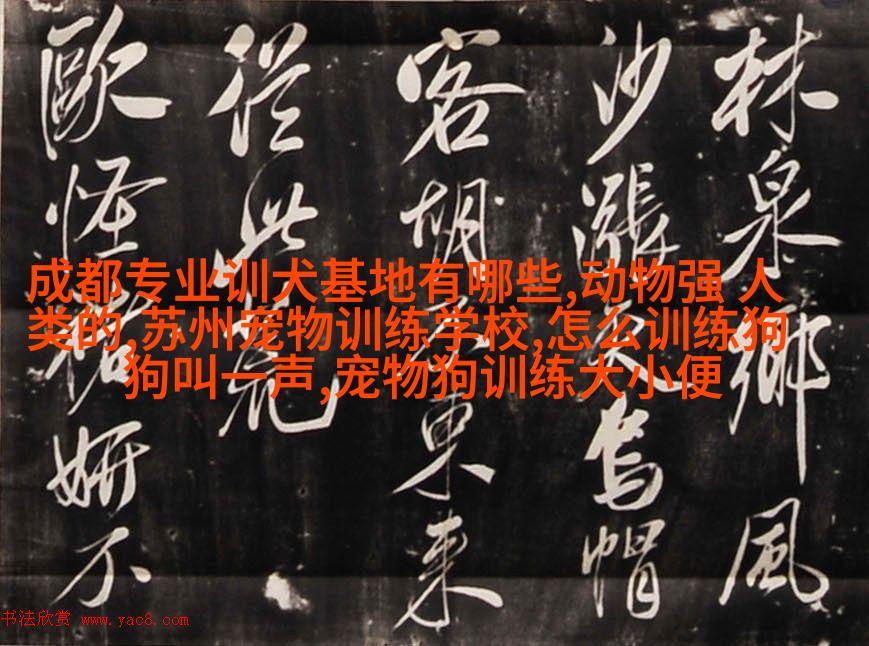 林泉鄉風
沙漲烏帽
客胡東來
從此
歐怪妍不
成都专业训犬基地有哪些,动物强 人
类的,苏州宠物训练学校,怎么训练狗
狗叫一声,宠物狗训练大小便
书法欣赏 www.yac8.com